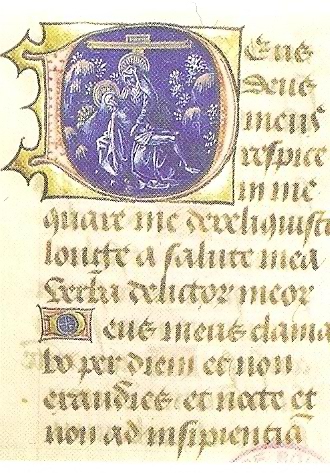 Deus
deus
meus
respice
in me
quare me dereliquisti
longe a salute mea
Verba delictor meor
Deus meus clama
bo per diem et non
exaudies et nocte et
non ad insipientiā